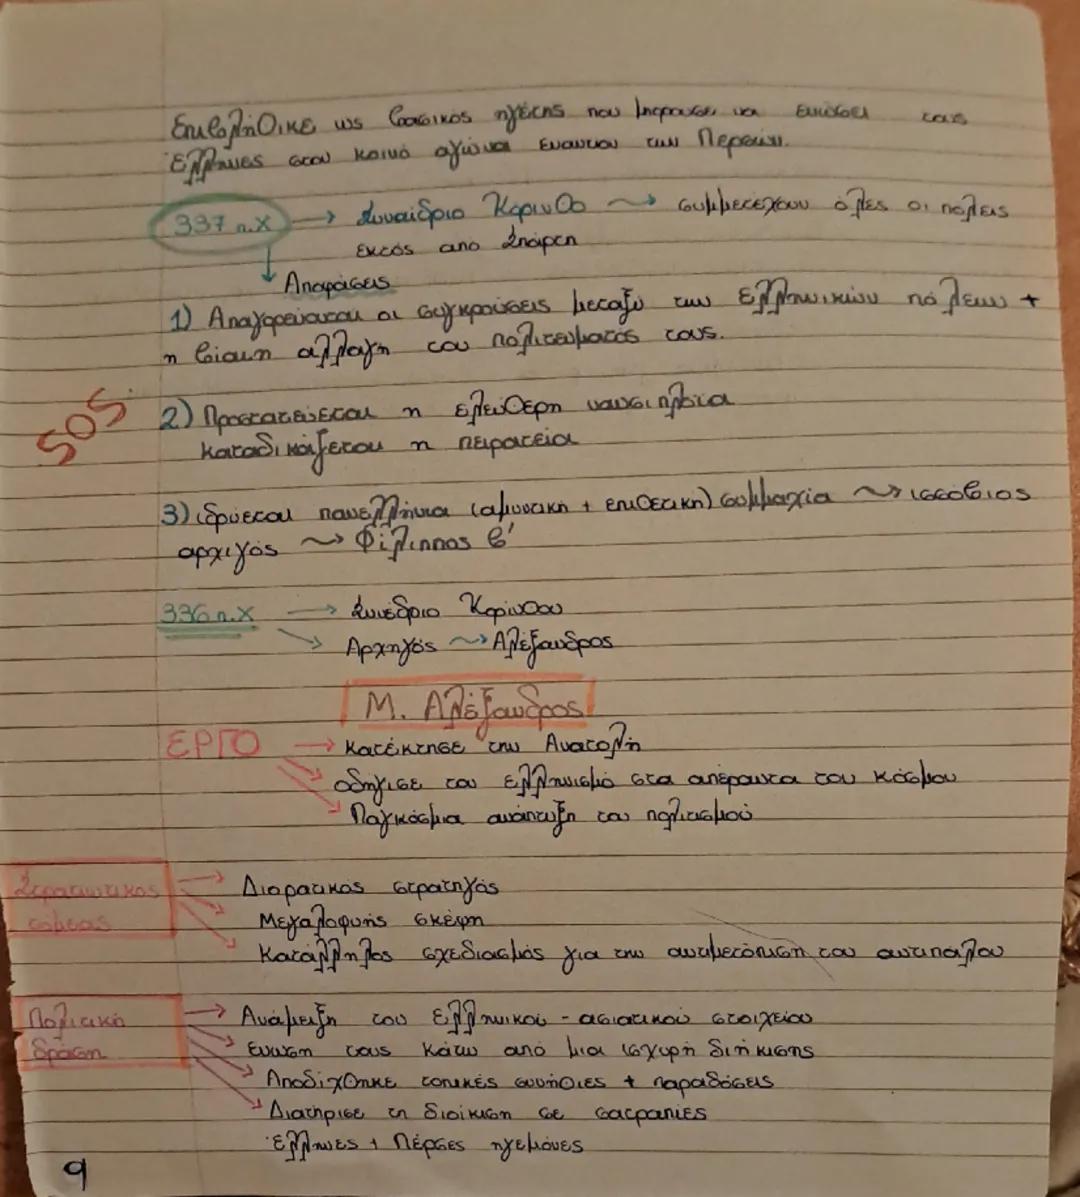 Επιβλήθηκε ως βασικός ηγέτης που μπορούσε να ενώσει τους
Έλληνες στον κοινό αγώνα εναντίον των Περσών.
337 π.Χ → Συναίδριο Κορινθο ⇝ συμμετέχουν όλες οι πόλεις
εκτός από Σπάρτη
↓ Αποφάσεις
1) Απαγορεύονται οι συγκρούσεις μεταξύ των Ελληνικών πόλεων +
η βίαιη αλλαγη του πολιτεύματός τους.
SOS
2) Προστατεύεται η ελεύθερη ναυσιπλοΐα
καταδικάζεται η πειρατεία
3) ιδρύεται πανελλήνια (αμυντική + επιθετική) συμμαχία ⇝ ισσόβιος
αρχιγός ⇝ Φίλιππος β'
336 π.Χ → Συνέδριο Κορίνθου
→ Αρχηγός ⇝ Αλέξανδρος
Μ. Αλέξανδρος
ΕΡΓΟ → κατέκτησε την Ανατολή
→ οδήγισε τον ελληνισμό στα απέραντα του κόσμου
→ Παγκόσμια ανάπτυξη του πολιτισμού
Στρατιωτικός τομέας → Διορατικός στρατηγός
→ Μεγαλοφυής σκέψη
→ Κατάλληλος σχεδιασμός για την αντιμετόπιση του αντιπάλου
Πολιτική δράση → Ανάμειξη του Ελληνικού - ασιατικού στοιχείου
→ Ενωση τους κάτω από μια ισχυρή διήκισης
→ Αποδίχθηκε τοπικές συνήθιες + παραδόσεις
→ Διατήρισε τη διοίκιση σε σατραπίες
Έλληνες + Πέρσες ηγεμόνες
9